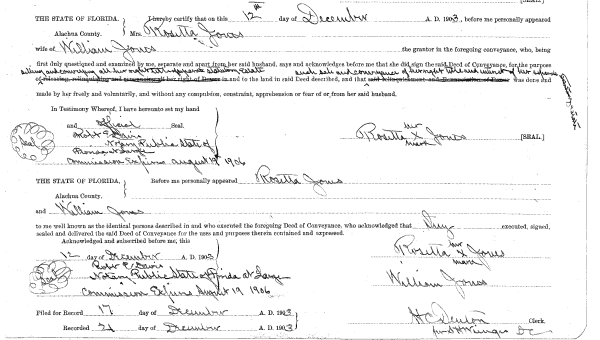 [SEAL]
THE STATE OF FLORIDA, I hereby certify that on this 12th day of December A. D. 1903, before me personally appeared
Alachua County. Mrs. Rosetta Jones
wife of William Jones the grantor in the foregoing conveyance, who, being
first duly questioned and examined by me, separate and apart from her said husband, says and acknowledges before me that she did sign the said Deed of Conveyance, for the purpose
selling and conveying all her right title separate Estate such sale and conveyance of her right title and interest of her separate
in and to the land in said Deed described, and that was done and
made by her freely and voluntarily, and without any compulsion, constraint, apprehension or fear of or from her said husband.
In Testimony Whereof, I have hereunto set my hand
and official Seal. her
Seal Robt E Davis Rosetta X Jones [SEAL]
Notary Public State of mark
Florida at Large
Commission Expires August 19th 1906
THE STATE OF FLORIDA, Before me personally appeared Rosetta Jones
Alachua County.
and William Jones
to me well known as the identical persons described in and who executed the foregoing Deed of Conveyance, who acknowledged that they executed, signed,
sealed and delivered the said Deed of Conveyance for the uses and purposes therein contained and expressed.
Acknowledged and subscribed before me, this
12 day of December A. D. 1903 her
Robt E Davis Rosetta X Jones
Seal Notary Public State of Florida at Large mark
Commission Expires August 19 1906 William Jones
Filed for Record 17 day of December A. D. 1903
H C Denton Clerk.
Recorded 21 day of December A. D. 1903
D C